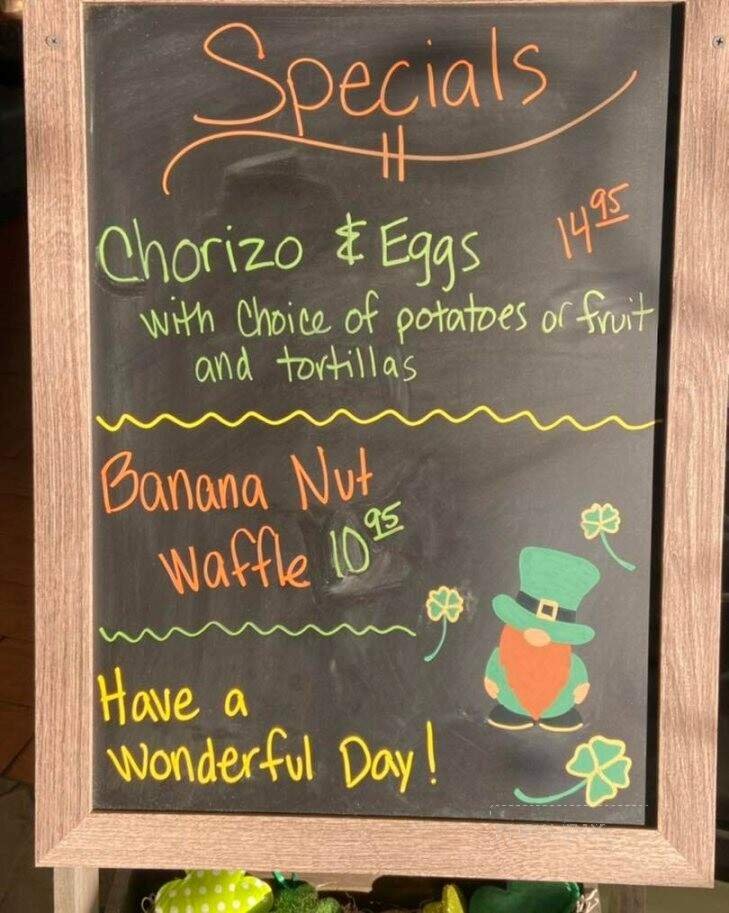 Specials
Chorizo & Eggs 14 95
with Choice of potatoes or fruit
and tortillas
Banana Nut
Waffle 10 95
Have a
Wonderful Day!